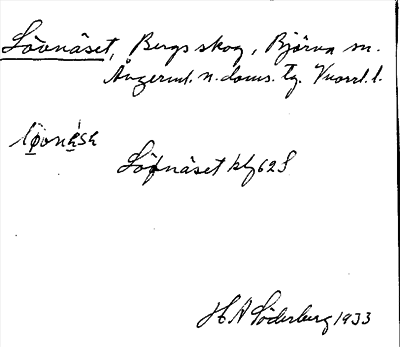 Lövnäset, Bergs skog, Björna sn.
Ångerml. n. doms. tg. Vnorrl. l.
Löfnäset kbl 62 S
H A Söderberg 1933